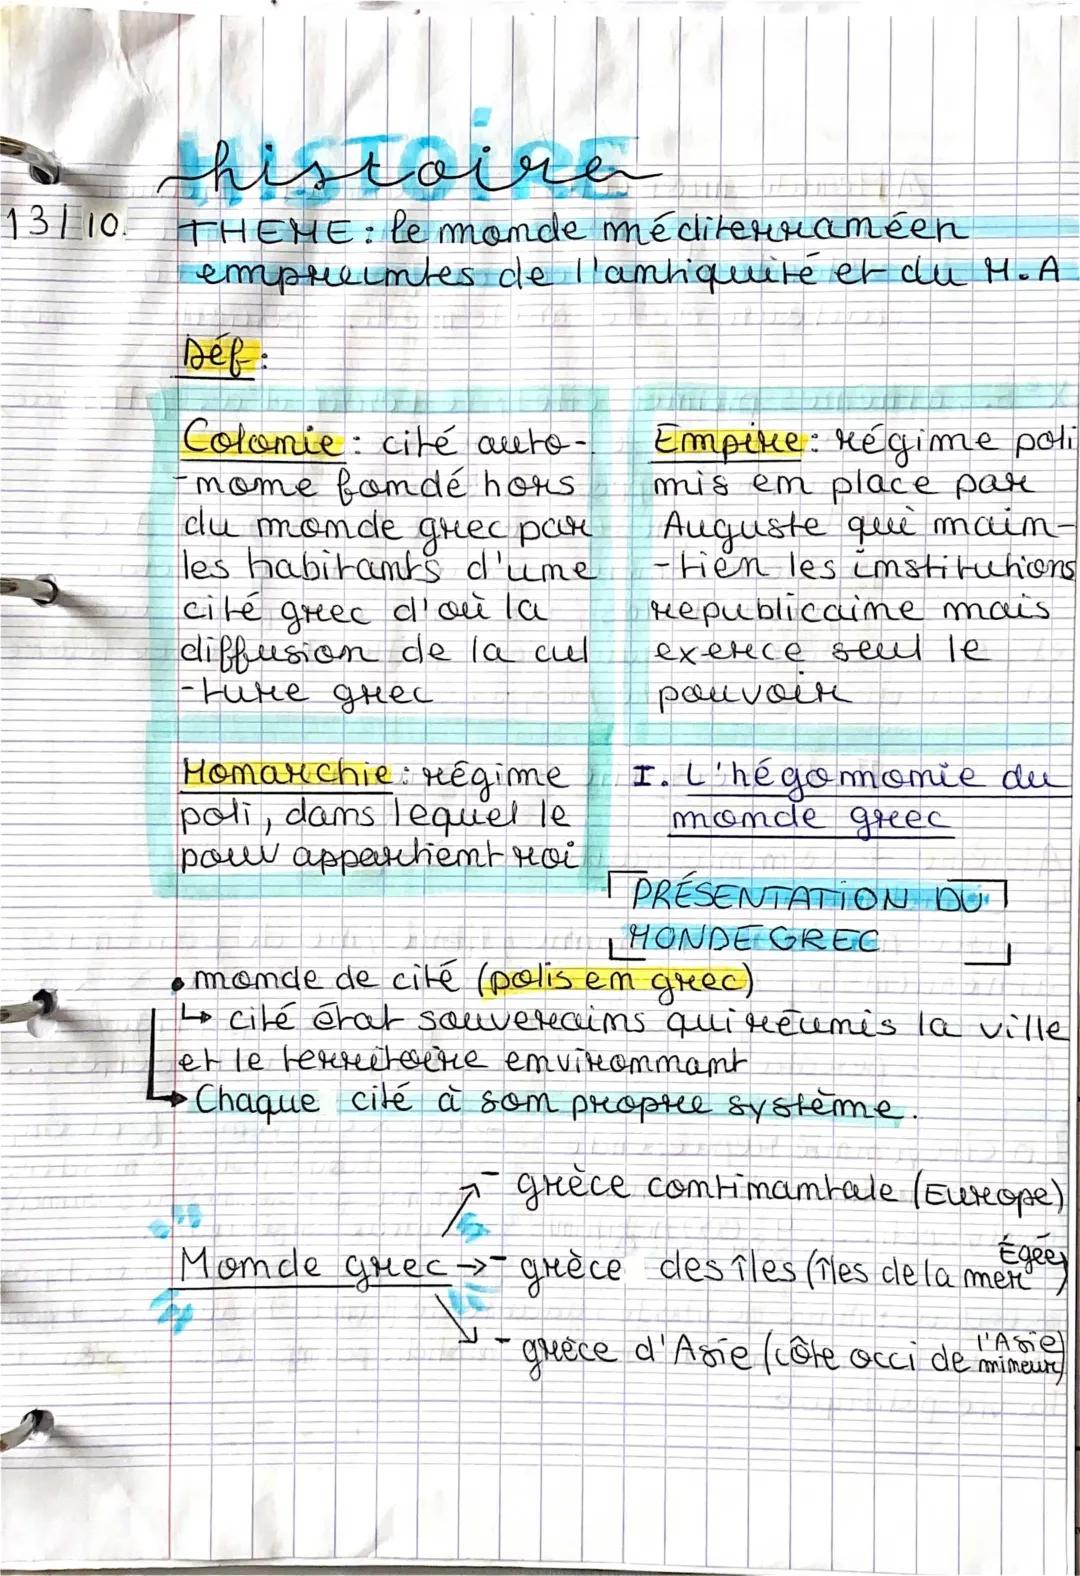 HISTOIRE
histoire
13/10.
THEME : le monde méditerraméen
empreintes de l'antiquité et du M.A
Déf :
Colonie : cité auto-
-nome fondé hors
du monde grec par
les habitants d'une
cité grec d'où la
diffusion de la cul
-ture grec
Empire : régime poli
mis en place par
Auguste qui main-
-tien les institutions
republicaine mais
exerce seul le
pouvoir
Monarchie : régime
poli, dans lequel le
pouv appartient roi
I. L'hégomonie du
monde grec
PRÉSENTATION DU
MONDE GREC
• monde de cité (polis en grec)
↳ cité état souverains qui réunis la ville
et le territoire environnant
→ Chaque cité à son propre système.
Monde grec → - grèce continantale (Europe)
- grèce des îles (îles de la mer Égée)
- grèce d'Asie (côte occi de l'Asie mineure)